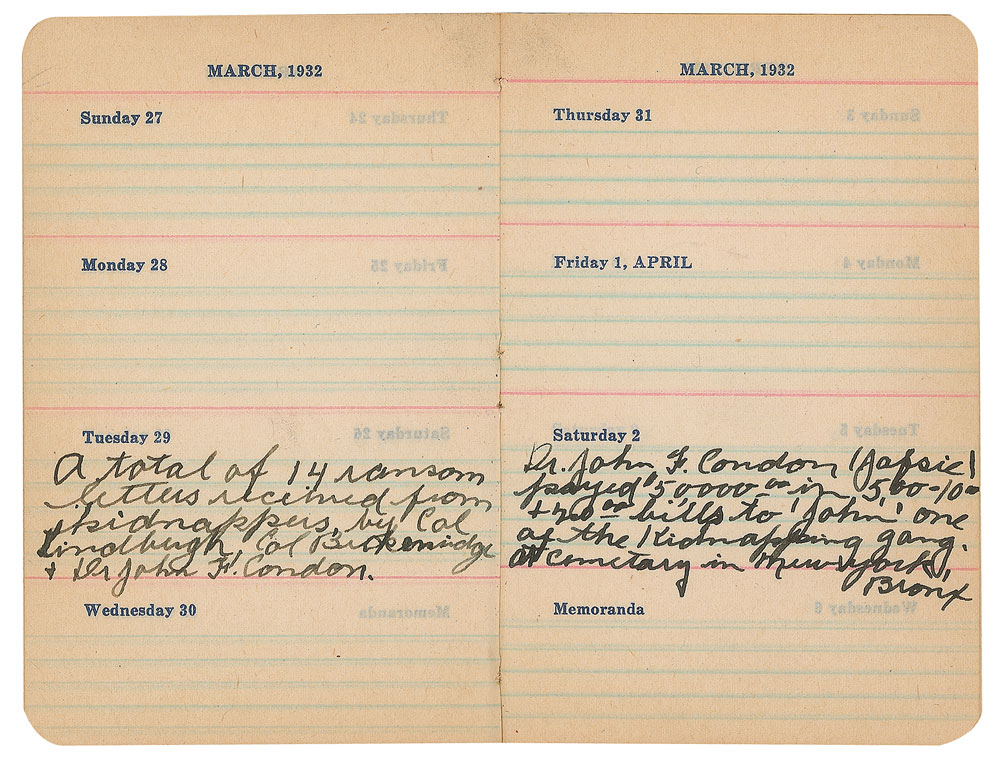 MARCH, 1932
Sunday 27
Monday 28
Tuesday 29
A total of 14 ransom
letters received from
kidnappers, by Col
Lindbergh, Col Breckenridge
+ Dr John F. Condon.
Wednesday 30
MARCH, 1932
Thursday 31
Friday 1, APRIL
Saturday 2
Dr. John F. Condon (Jafsie)
payed $50000 00 in 5,00-10 00
+ 20 00 bills to "John" one
of the Kidnapping gang.
at cemetary in New York,
Bronx
Memoranda